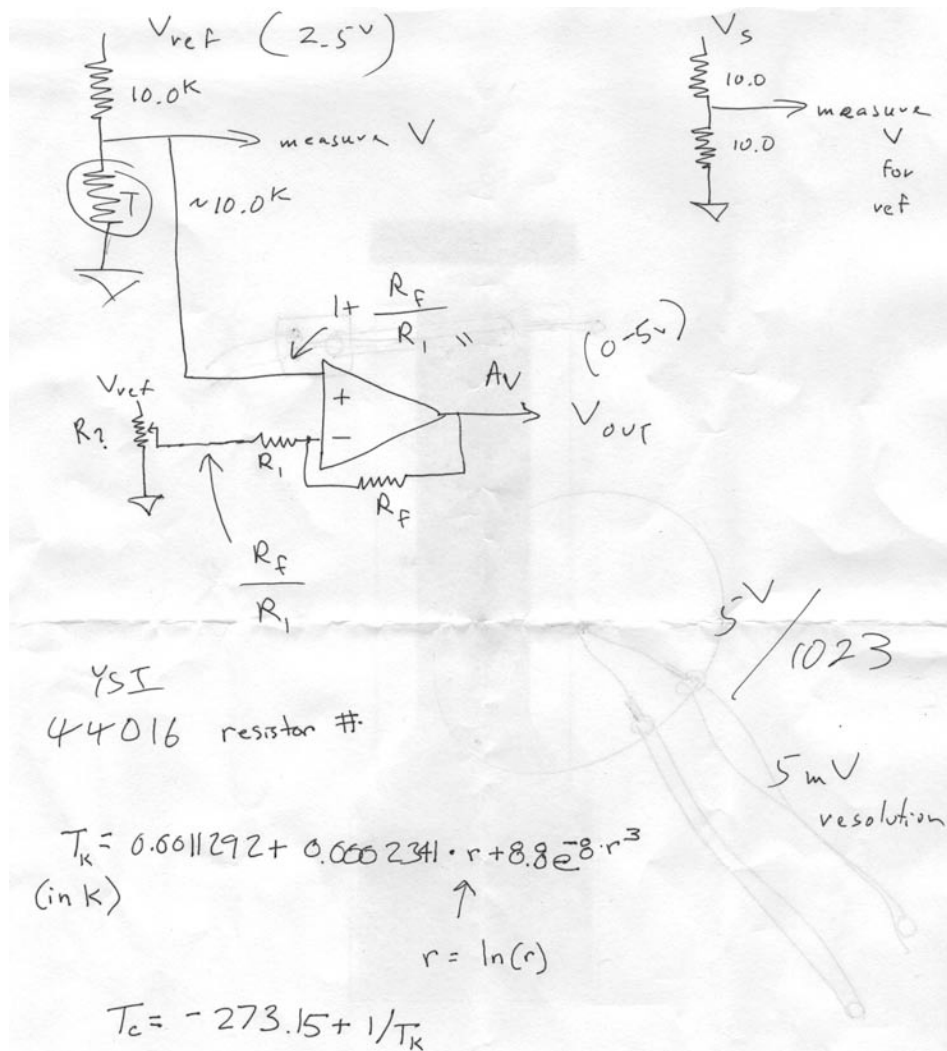 Vref (2.5V)
10.0K
measure V
T
~10.0K
Vs
10.0
measure
10.0
V
for
ref
1+ Rf
R1 "
(0-5V)
Vref
R?
+
Av
VOUT
−
R1
Rf
Rf
R1
5V
/1023
YSI
44016 resistor #.
5mV
resolution
Tk = 0.0011292 + 0.0002341 · r + 8.8e-8 · r3
(in K)
r = ln(r)
Tc = -273.15 + 1/TK